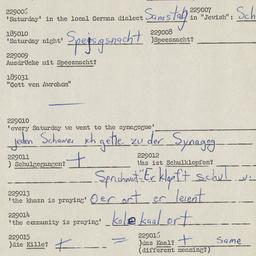 229006 229007
'Saturday' in the local German dialect Samstag in "Jewish": Sch
185010 229008
'Saturday night' )Speesnacht?
229009
Ausdrücke mit Speesnacht?
185031
"Gott vun Awrohom"
229010
'every Saturday we went to the synagogue'
jeden ich gehe zu der Synagog
229011 229012
) Schulgegangen? + Was ist Schulklopfen?
Er klopft schul
229013
'the khazn is praying' Oer ort er leient
229014
'the community is praying' kole kaal ort
229015 229016
)die Kille? + = )das Kaal? + same
(different meaning?)